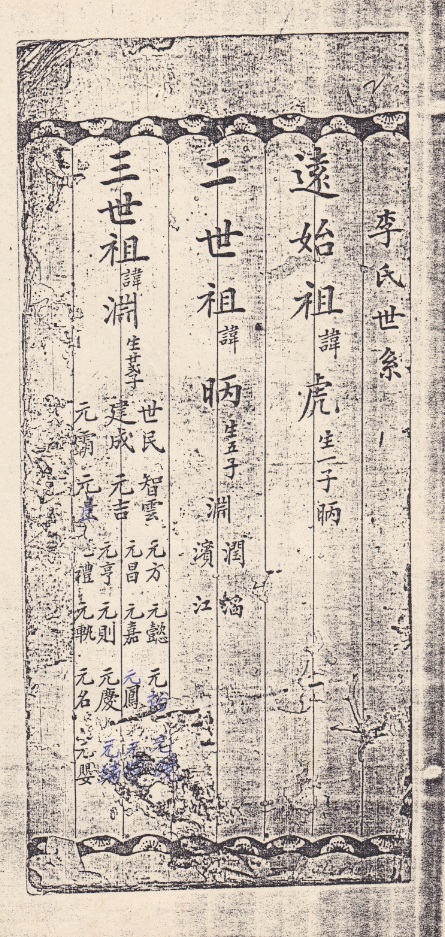 李氏世系
遠始祖諱虎生一子昞
二世祖諱昞生五子
淵
潤
濱
江
三世祖諱淵生廿弍子
世民 智雲 元方 元懿 元裕
建成 元吉 元昌 元嘉 元鳳
元亨 元則 元慶
元霸 元 禮 元軌 元名 元嬰